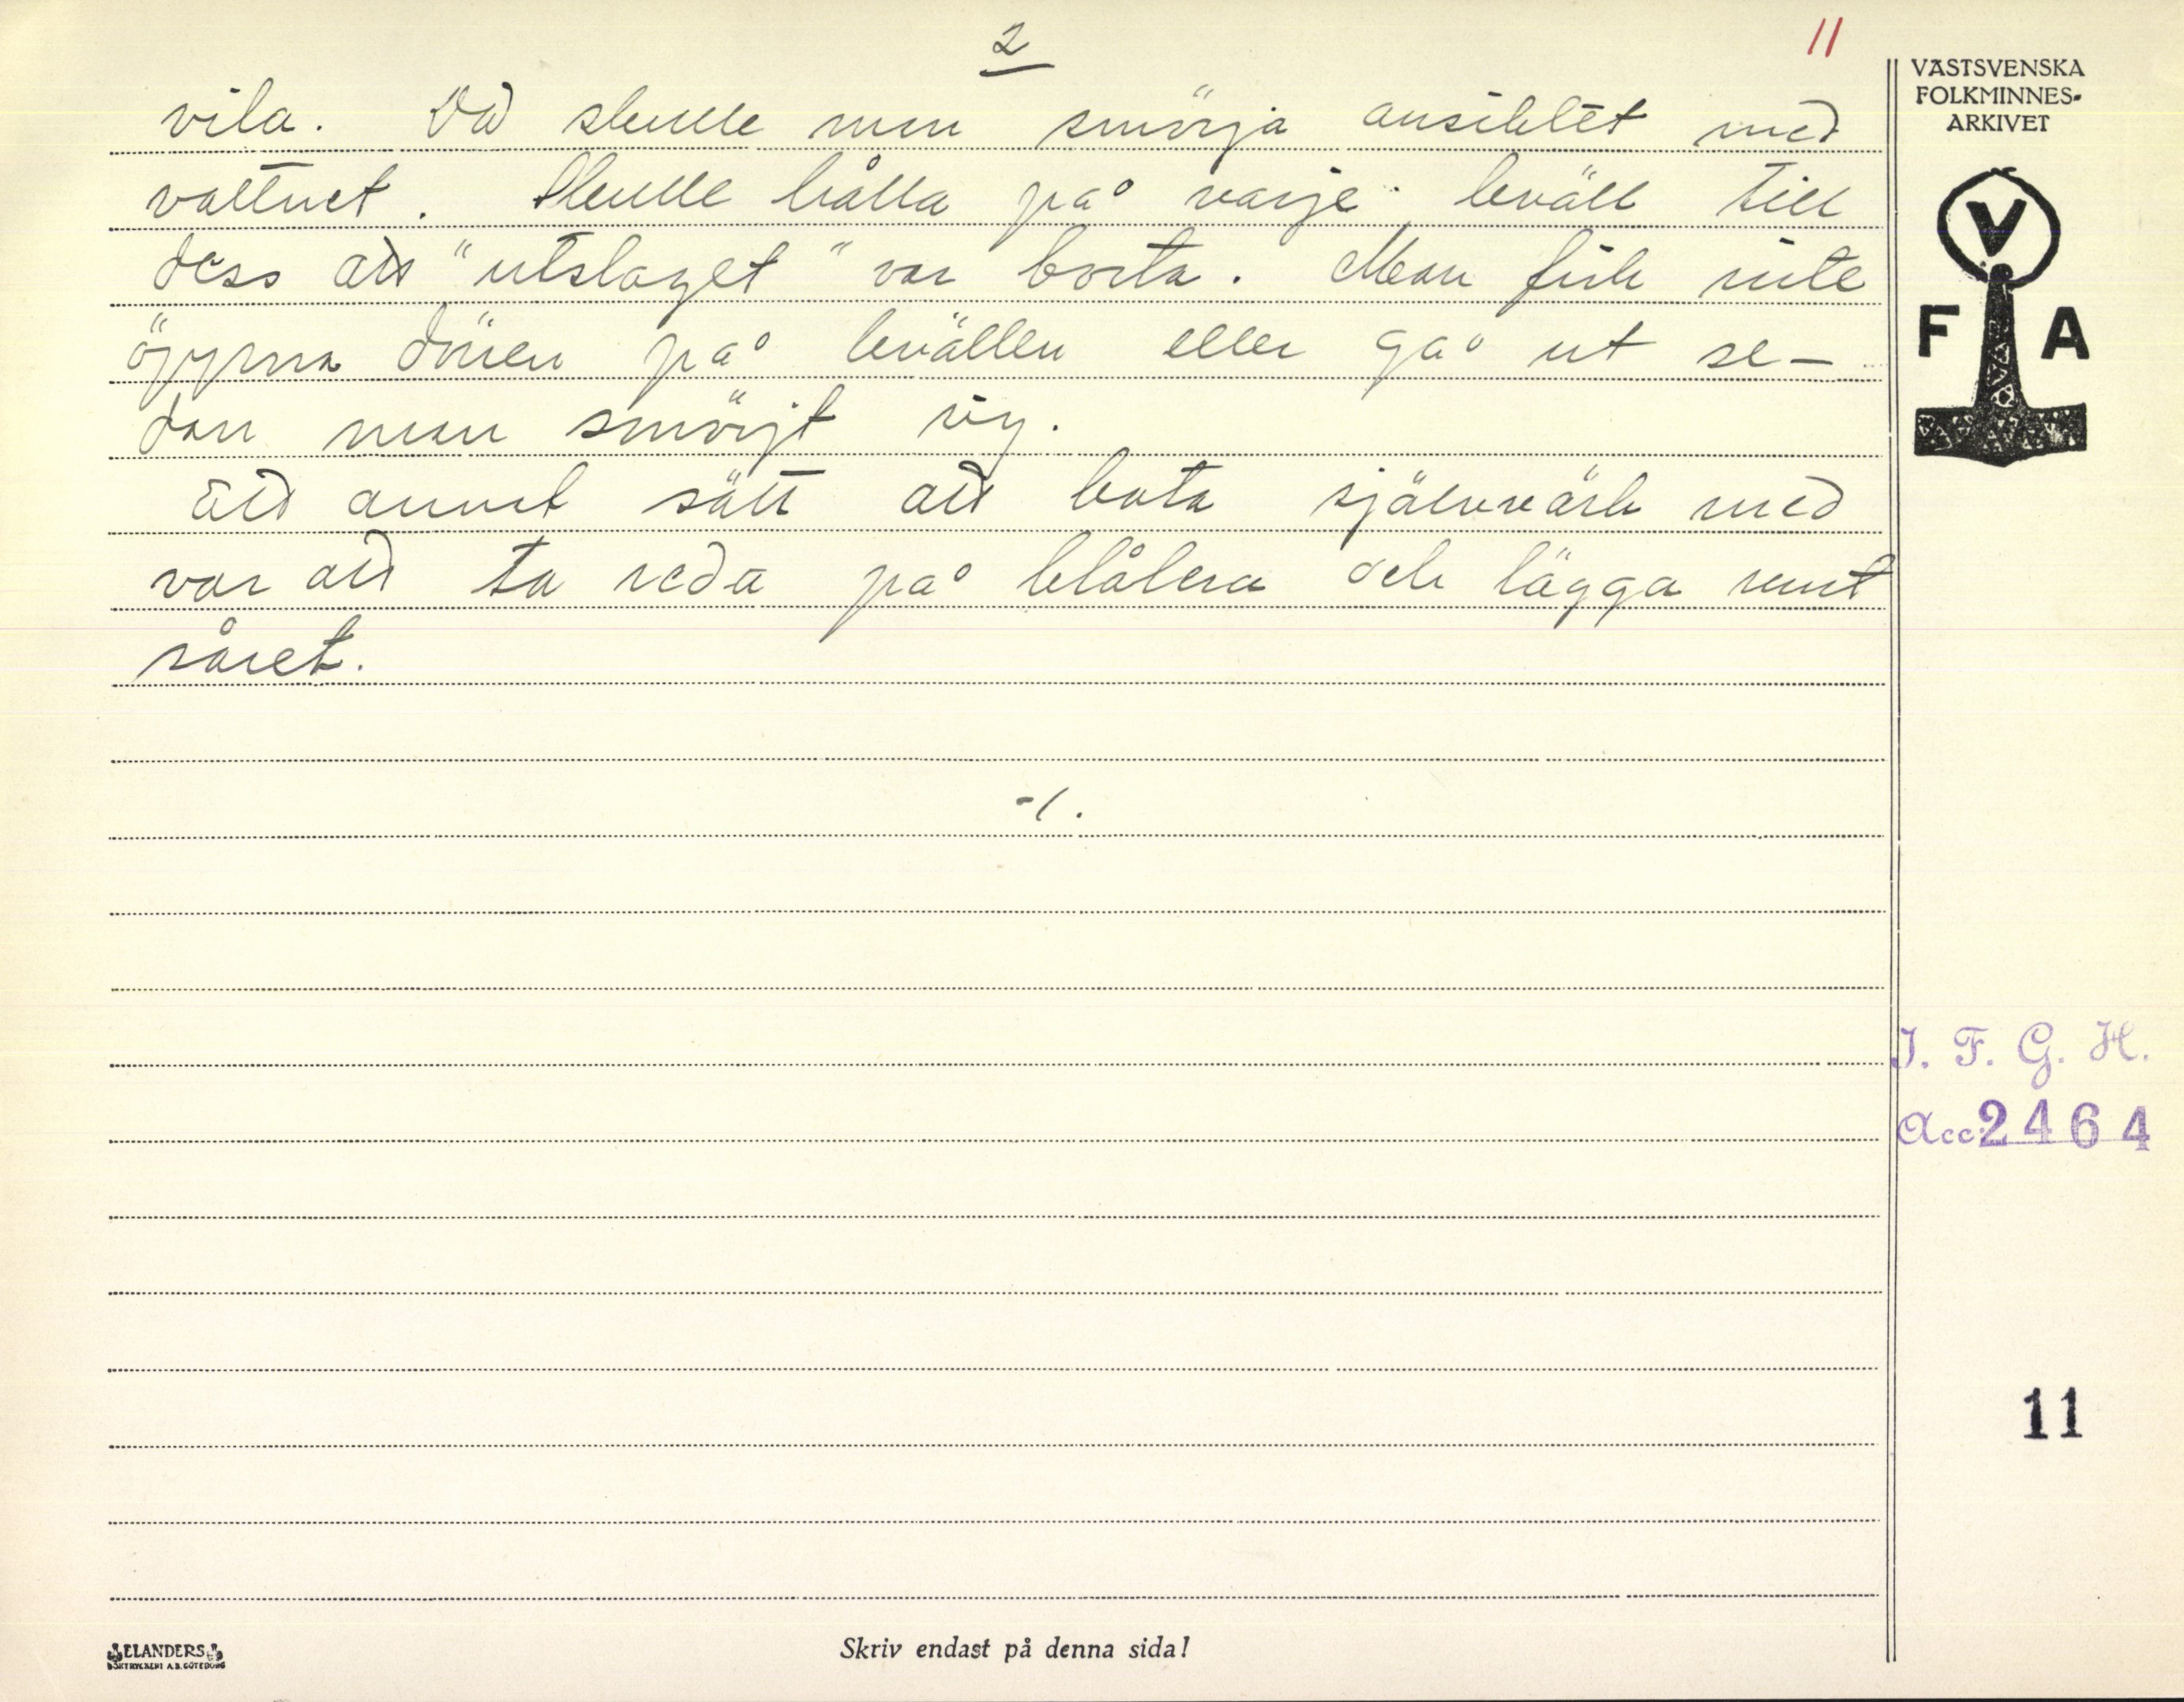 2
11
vila. Då skulle man smörja ansiktet med
vattnet. Skulle hålla på varje kväll till
dess att "utslaget" var borta. Man fick inte
öppna dörren på kvällen eller gå ut se-
dan man smörjt sig.
Ätt annat sätt att bota självvärk med
var att ta reda på blålera och lägga runt
såret.
-/.
VÄSTSVENSKA
FOLKMINNES-
ARKIVET
V
F A
I. F. G. H.
Acc. 2464
11
ELANDERS
BOKTRYCKERI A.B. GÖTEBORG
Skriv endast på denna sida!